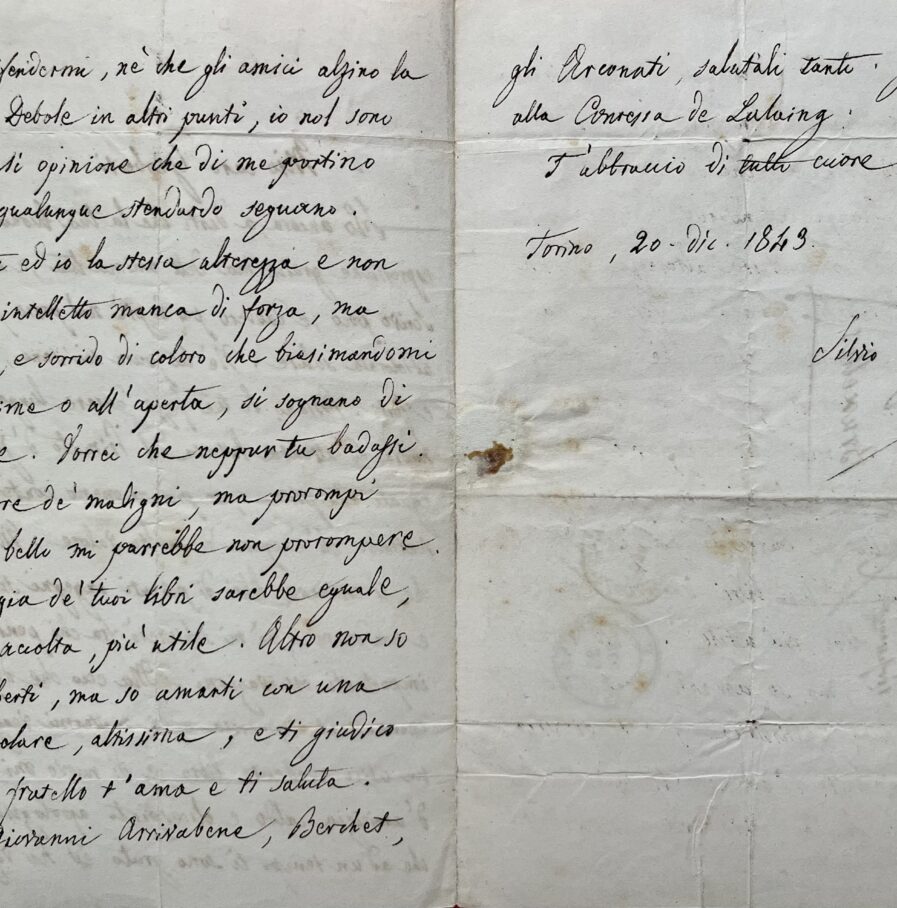 fendermi, nè che gli amici alzino la
Debole in altri punti, io nol sono
si opinione che di me portino
qualunque stendardo seguano.
ed io la stessa alterezza e non
intelletto manca di forza, ma
, e sorrido di coloro che biasimandomi
ime o all'aperta, si sognano di
e. Vorrei che neppur tu badassi
re de' maligni, ma prorompi
bello mi parrebbe non prorompere.
gia de' tuoi libri sarebbe eguale,
accolta, più utile. Altro non so
berti, ma so amarti con una
olare, altissima, e ti giudico
fratello t'ama e ti saluta.
Giovanni Arrivabene, Berchet,
gli Arconati, salutali tanto.
alla Contessa de Lalaing.
T'abbraccio di tutto cuore
Torino, 20 dic. 1843.
Silvio